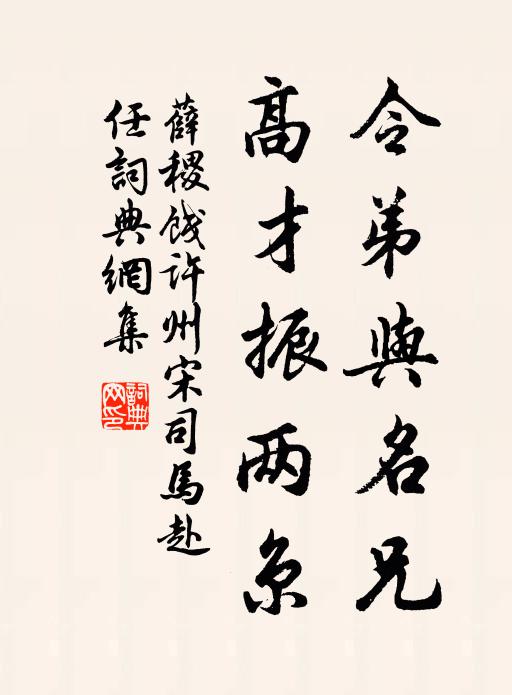 令弟與名兄
高才振两京
薛稷餞許州宋司馬赴
任詞典網集
詞典網印